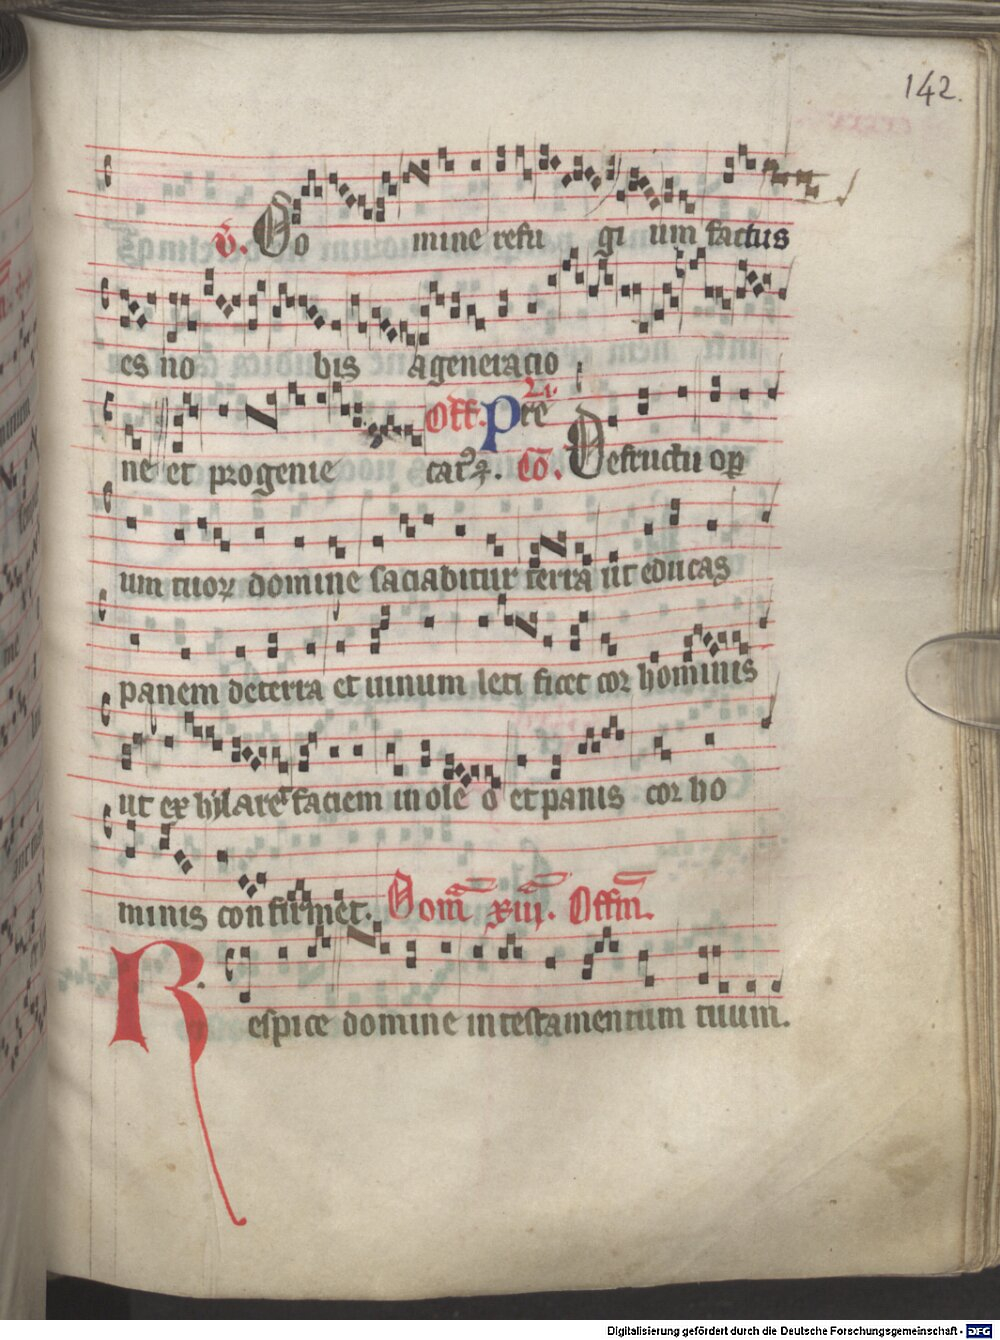 142.
v̄. Do mine refu gi um factus
es no bis a generacio
ne et progenie Off. Pre
cat9 Cō. De fructu op
um tuoꝝ domine saciabitur terra ut educas
panem de terra et uinum leti ficet cor hominis
ut ex hylaret faciem in ole o et panis cor ho
minis confirmet. Dom̄ xiii. Offm̄.
Respice domine in testamentum tuum.
Digitalisierung gefördert durch die Deutsche Forschungsgemeinschaft - DFG